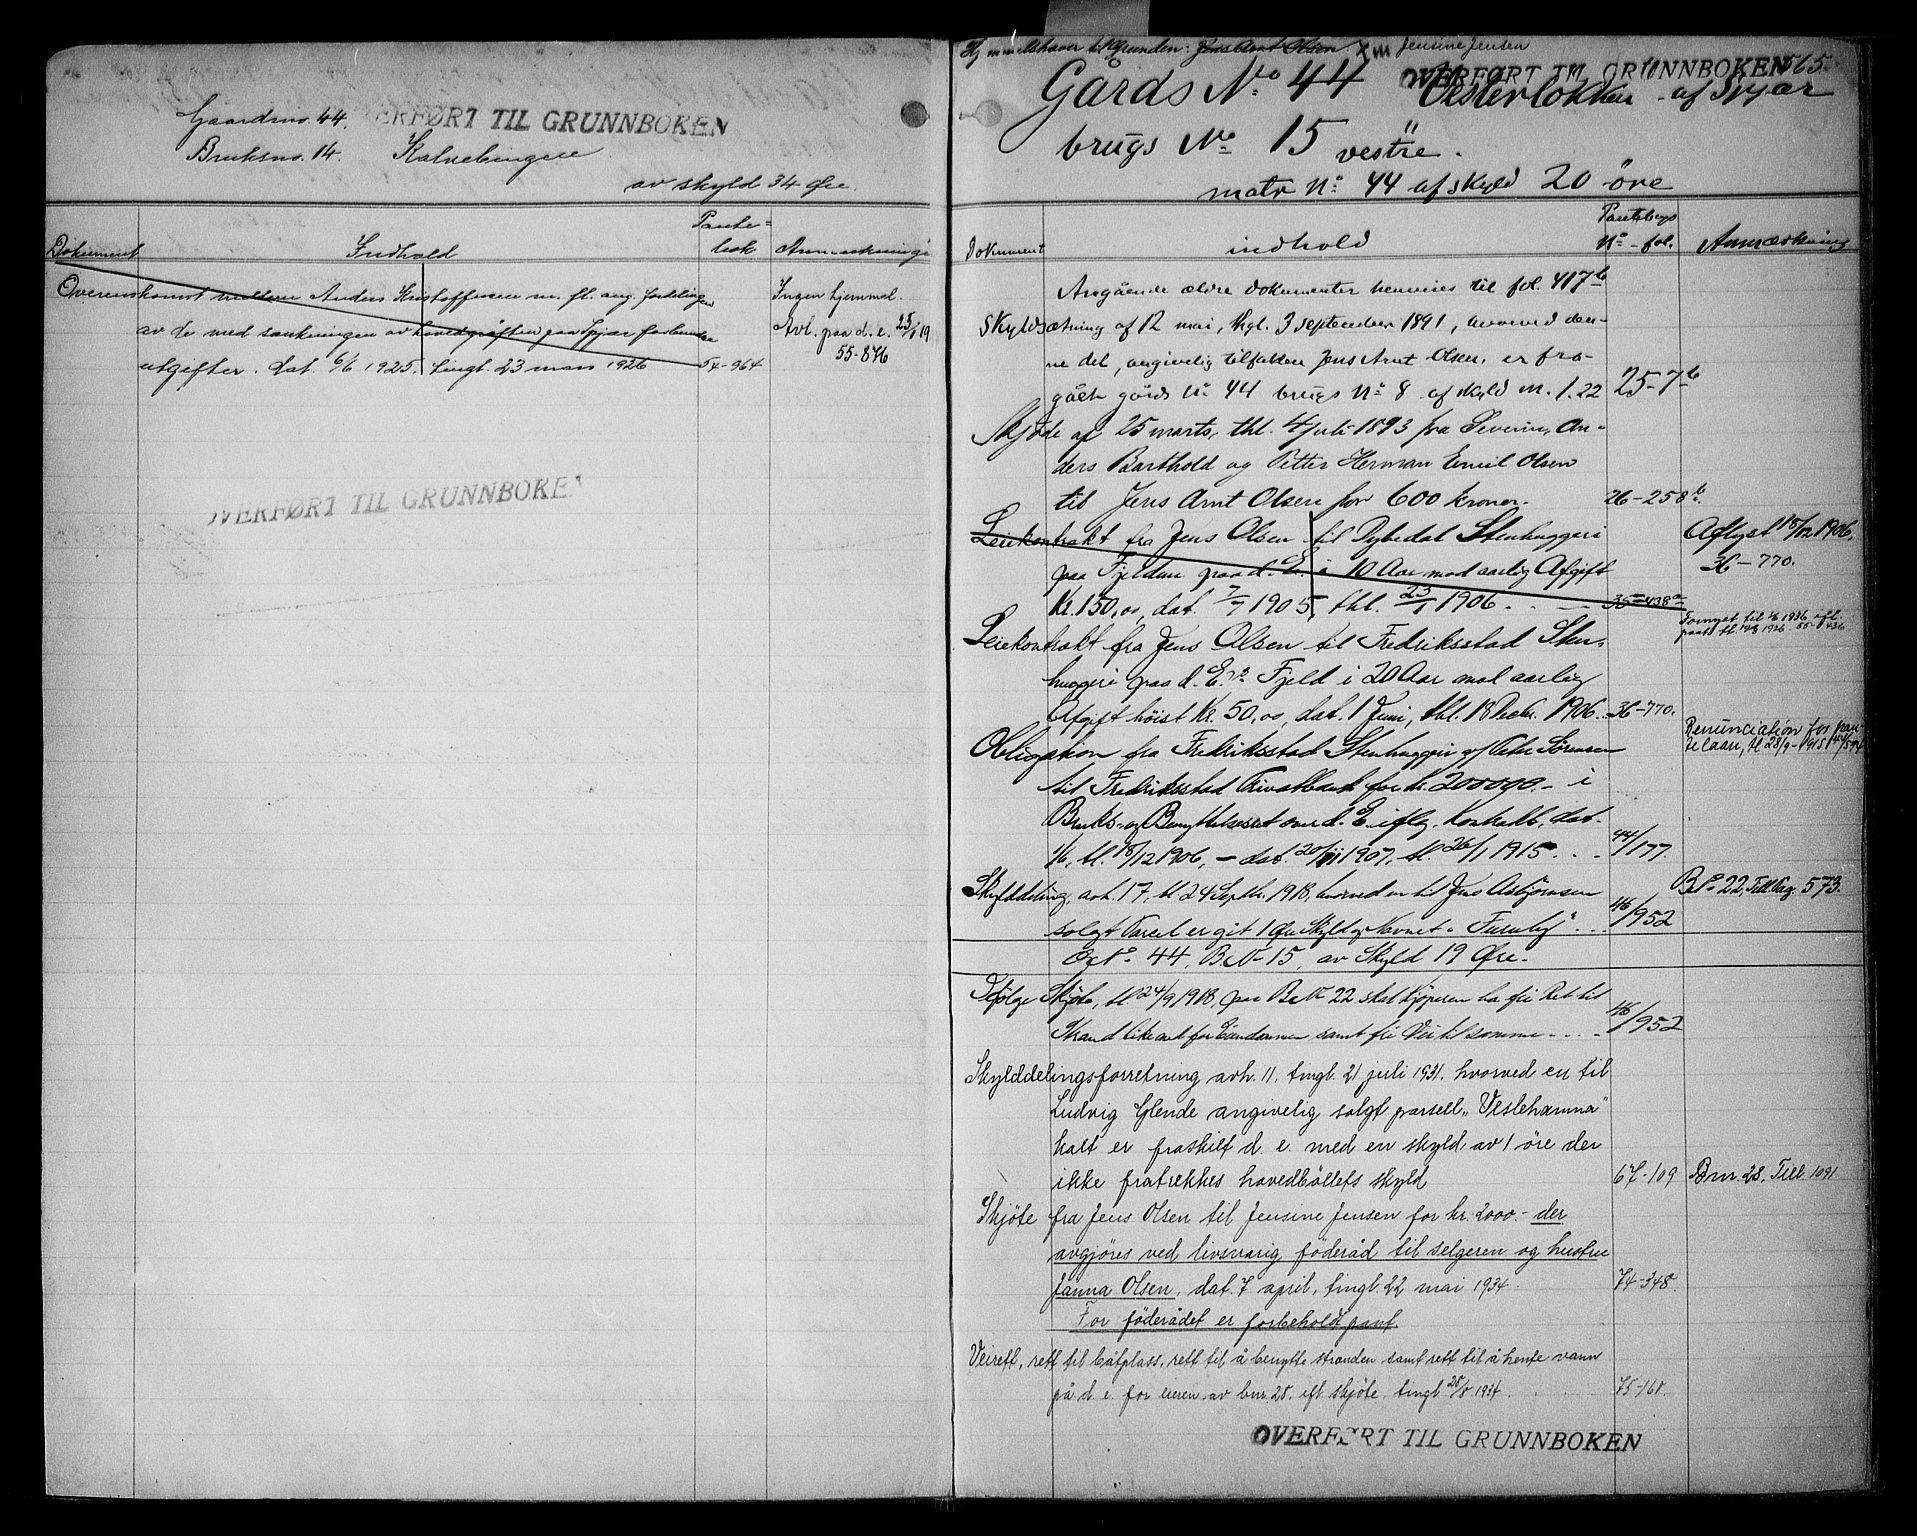 Gaardsno. 44.
OVERFØRT TIL GRUNNBOKEN
Bruksno. 14. Kalvehingen
av skyld 34 Øre.
Dokument Indhold Pante-bok Anmerkninger
Overenskomst mellem Anders Kristoffersen m. fl. ang. fordelingen
av de med sænkningen av hovedgrøften paa Spjær forbundne
utgifter. dat. 6/6 1925. tingl. 23 mars 1926 54-964
Ingen hjemmel.
Avl. paa d. e. 25/1 19
55-876
OVERFØRT TIL GRUNNBOKEN
Hjemmelshaver til Grunden: Jens Arnt Olsen. Jensine Jensen
OVERFØRT TIL GRUNNBOKEN
565.
Gårds No 44 Vesterløkken af Spjær
brugs No 15 vestre.
matr No 44 af skyld 20 öre
Dokument indhold Pantebogs No - fol. Anmærkning
Angående ældre dokumenter henvises til fol. 417b
Skyldsætning af 12 mai, thgl. 3 september 1891, hvorved den-
ne del, angivelig tilfalden Jens Arnt Olsen, er fra-
gået gårds No 44 brugs No 8 af skyld m. 1.22 25-7b
Skjöde af 25 marts, thl. 4 juli 1893 fra Severin, An-
ders Barthold og Petter Herman Emil Olsen
til Jens Arnt Olsen for 600 kroner. 26-258b.
Leiekontrakt fra Jens Olsen til Dybedal Stenhuggeri
paa Fjeldan paa d. E. i 10 Aar mod aarlig Afgift
Kr. 150,00, dat. 7/7 1905, thl. 23/1 1906. 35-438a
Aflyst 18/12 1906.
36-770.
Leiekontrakt fra Jens Olsen til Fredriksstad Sten-
huggeri paa d. E.s Fjeld i 20 Aar mod aarlig
Afgift höist Kr. 50,00, dat. 1 Juni, thl. 18 Decbr. 1906. 36-770.
Fornyet til 1/6 1936 ifl.
paat. tl. 19/8 1926 55-436
Obligation fra Fredriksstad Stenhuggeri v/ Peter Sørensen
til Fredriksstad Privatbank for kr. 200000.- i
Bruks- og Benyttelsesret over d. E. iflg. Kontrakt, dat.
1/6, tl. 18/12 1906, - dat. 20/ 1907, tl. 26/1 1915. 44/177
Renunciation for pan-
telaan, tl 28/9-1915 44/594
Skylddeling, avh. 17, tl 24 Septbr. 1918, hvorved en til Jens Asbjörnsen
solgt Parcel er git 1 Øre Skyld og Navnet "Furuly". 46/952
B No 22, Till. Pag. 573.
G No 44, B No 15, av Skyld 19 Øre.
Ifølge Skjöte, tl 24/9 1918, paa B No 22 skal Kjöperen ha fri Ret til
Strand like ned for Eiendommen samt fri Vei til samme 46/952
Skylddelingsforretning avh. 11. tingl. 21 juli 1931. hvorved en til
Ludvig Glende angivelig solgt parsell „Veslehamna"
kalt er fraskilt d. e. med en skyld av 1 öre der
ikke fratrekkes hovedbölets skyld 67-109 Bnr. 28. Till 1091
Skjöte fra Jens Olsen til Jensine Jensen for kr. 2000.- der
avgjöres ved livsvarig föderåd til selgeren og hustru
Janna Olsen. dat. 7 april, tingl. 22 mai 1934. 74-348
For föderådet er forbeholdt pant.
Veirett, rett til båtplass, rett til å benytte stranden samt rett til å hente vann
på d. e. for eieren av bnr. 28. ifl skjöte tingl 28/8 1934. 75-168.
OVERFØRT TIL GRUNNBOKEN